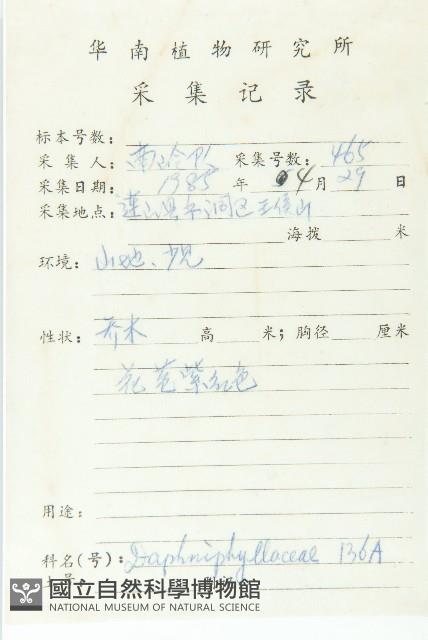 华南植物研究所
采集记录
标本号数:
采集人: 南岭队 采集号数: 465
采集日期: 1985 年 04 月 29 日
采集地点: 连山县 王侯山
海拨 米
环境: 山地、少见
性状: 乔木 高 米; 胸径 厘米
花苞紫红色
用途:
科名(号): Daphniphyllaceae 136A
國立自然科學博物館
NATIONAL MUSEUM OF NATURAL SCIENCE